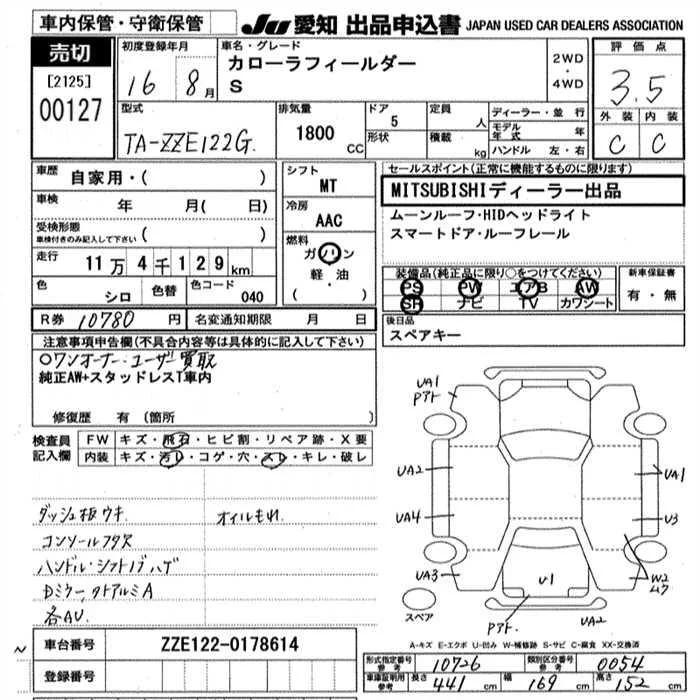 車内保管・守衛保管
JU 愛知 出品申込書 JAPAN USED CAR DEALERS ASSOCIATION
売切
[2125]
00127
初度登録年月
16年 8月
車名・グレード
カローラフィールダー
S
2WD
・
4WD
評価点
3.5
外装 内装
C C
型式
TA-ZZE122G
排気量
1800 CC
ドア
5
形状
定員
人
積載
kg
ディーラー・並行
モデル年式 年
ハンドル 左・右
車歴 自家用・( )
車検 年 月( 日)
受検形態
車検付きのみ記入して下さい ( )
走行 11万4千129km
色 シロ 色替 色コード 040
R券 10780円 名変通知期限 月 日
シフト
MT
冷房
AAC
燃料
ガソリン
軽・油
( )
セールスポイント(正常に機能するものに限ります)
MITSUBISHIディーラー出品
ムーンルーフ・HIDヘッドライト
スマートドア・ルーフレール
装備品(純正品に限り○をつけてください)
PS PW エアB AW
SR ナビ TV カワシート
新車保証書
有・無
後日品
スペアキー
注意事項申告欄(不具合内容等は具体的に記入して下さい)
○ワンオーナー・ユーザー買取
純正AW+スタッドレスT車内
修復歴 有 (箇所
検査員記入欄
FW キズ・飛石・ヒビ割・リペア跡・X要
内装 キズ・汚レ・コゲ・穴・スレ・キレ・破レ
ダッシュ板ウキ
オイルもれ
コンソールフタス
ハンドル・シフトノブハゲ
DミラーウトアルミA
各AU
UA1
Pアト
UA2
UA4
UA3
UA1
U3
W2
ムケ
U1
Pアト
UA2
スペア
A-キズ E-エクボ U-凹み W-補修跡 S-サビ C-腐食 XX-交換済
車台番号 ZZE122-0178614
登録番号
形式指定番号 参考 10726 類別区分番号 参考 0054
車庫証明用 参考 長さ 441cm 幅 169cm 高さ 152cm